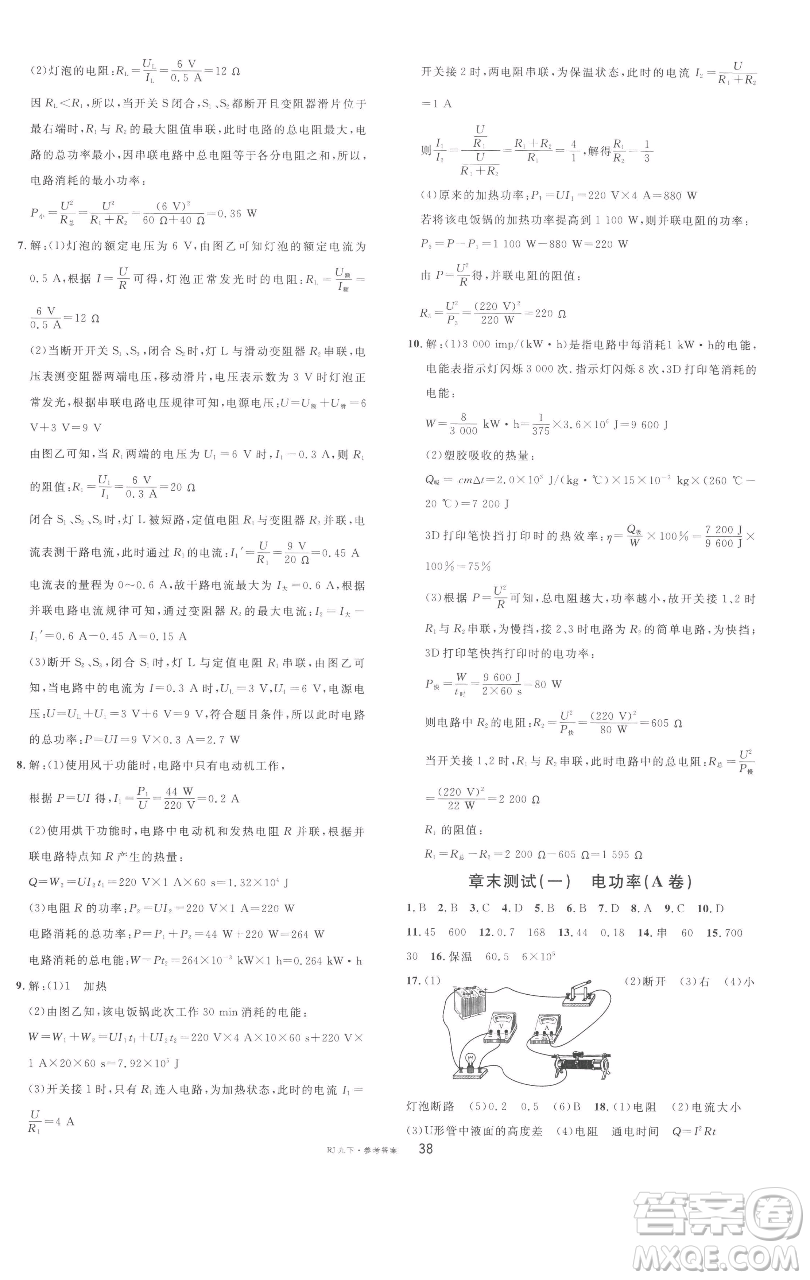 (2)灯泡的电阻:R_L=U_L/I_L=6 V/0.5 A=12 Ω
因 R_L<R₁,所以,当开关 S 闭合,S₁、S₂都断开且变阻器滑片位于
最右端时,R₁与 R₂的最大阻值串联,此时电路的总电阻最大,电路
的总功率最小,因串联电路中总电阻等于各分电阻之和,所以,
电路消耗的最小功率:
P小=U²/R总=U²/(R₁+R₂)=(6 V)²/(60 Ω+40 Ω)=0.36 W
7.解:(1)灯泡的额定电压为 6 V,由图乙可知灯泡的额定电流为
0.5 A,根据 I=U/R可得,灯泡正常发光时的电阻:R_L=U额/I额=
6 V/0.5 A=12 Ω
(2)当断开开关 S₁、S₃,闭合 S₂时,灯 L 与滑动变阻器 R₂串联,电
压表测变阻器两端电压,移动滑片,电压表示数为 3 V 时灯泡正
常发光,根据串联电路电压规律可知,电源电压:U=U额+U滑=6
V+3 V=9 V
由图乙可知,当 R₁两端的电压为 U₁=6 V 时,I₁=0.3 A,所以 R₁
的阻值:R₁=U₁/I₁=6 V/0.3 A=20 Ω
闭合 S₁、S₂、S₃时,灯 L 被短路,定值电阻 R₁与变阻器 R₂并联,电
流表测干路电流,此时通过 R₁的电流:I₁′=U/R₁=9 V/20 Ω=0.45 A
电流表的量程为 0～0.6 A,故干路电流最大为 I大=0.6 A,根据
并联电路电流规律可知,通过变阻器 R₂的最大电流:I₂=I大-
I₁′=0.6 A-0.45 A=0.15 A
(3)断开 S₂、S₃,闭合 S₁时,灯 L 与定值电阻 R₁串联,由图乙可
知,当电路中的电流为 I=0.3 A 时,U_L=3 V,U₁=6 V,电源电
压:U=U_L+U₁=3 V+6 V=9 V,符合题目条件,所以此时电路
的总功率:P=UI=9 V×0.3 A=2.7 W
8.解:(1)使用风干功能时,电路中只有电动机工作,
根据 P=UI 得,I₁=P₁/U=44 W/220 V=0.2 A
(2)使用烘干功能时,电路中电动机和发热电阻 R 并联,根据并
联电路特点知 R 产生的热量:
Q=W₂=UI₂t₁=220 V×1 A×10×60 s=1.32×10⁵ J
(3)电阻 R 的功率:P₂=UI₂=220 V×1 A=220 W
电路消耗的总功率:P=P₁+P₂=44 W+220 W=264 W
电路消耗的总电能:W=Pt₂=264×10⁻³ kW×1 h=0.264 kW·h
9.解:(1)1 加热
(2)由图乙知,该电饭锅此次工作 30 min 消耗的电能:
W=W₁+W₂=UI₁t₁+UI₂t₂=220 V×4 A×10×60 s+220 V×
1 A×20×60 s=7.92×10⁵ J
(3)开关接 1 时,只有 R₁连入电路,为加热状态,此时电流 I₁=
U/R₁=4 A
开关接 2 时,两电阻串联,为保温状态,此时的电流 I₂=U/(R₁+R₂)
=1 A
则I₁/I₂=(U/R₁)/(U/(R₁+R₂))=(R₁+R₂)/R₁=4/1,解得R₁/R₂=1/3
(4)原来的加热功率:P₁=UI₁=220 V×4 A=880 W
若将该电饭锅的加热功率提高到 1 100 W,可并联一电阻,则
P₂=P-P₁=1 100 W-880 W=220 W
由 P=U²/R得,并联电阻的阻值:
R₀=U²/P₂=(220 V)²/220 W=220 Ω
10.解:(1)3 000 imp/(kW·h)是指电路中每消耗1 kW·h的电能,
电能表指示灯闪烁 3 000 次. 指示灯闪烁 8 次,3D 打印笔消耗的
电能:
W=8/3 000 kW·h=1/375×3.6×10⁶ J=9 600 J
(2)塑胶吸收的热量:
Q吸=cmΔt=2.0×10³ J/(kg·℃)×15×10⁻³ kg×(260 ℃-
20 ℃)=7 200 J
3D 打印笔快挡打印时的热效率:η=Q吸/W×100%=7 200 J/9 600 J×
100%=75%
(3)根据 P=U²/R可知,总电阻越大,功率越小,故开关接 1、2 时
R₁与 R₂串联,为慢挡,接 2、3 时电路为 R₂的简单电路,为快挡.
3D 打印笔快挡打印的电功率:
P快=W/t时=9 600 J/(2×60 s)=80 W
则电路中 R₂的电阻:R₂=U²/P快=(220 V)²/80 W=605 Ω
当开关接 1、2 时,R₁与 R₂串联,此时电路中的总电阻:R总=U²/P慢
=(220 V)²/22 W=2 200 Ω
R₁的阻值:
R₁=R总-R₂=2 200 Ω-605 Ω=1 595 Ω
章末测试(一) 电功率(A 卷)
1.B 2.B 3.C 4.D 5.D 6.C 7.B 8.A 9.C 10.D
11.45 600 12.0.7 168 13.44 0.18 14.串 60 15.700
30 16.保温 60.5 6×10⁵
17.(1) (2)断开 (3)右 (4)小
灯泡断路 (5)0.2 0.5 (6)B 18.(1)电阻 (2)电流大小
(3)U形管中液面的高度差 (4)电阻 通电时间 Q=I²Rt
RJ 九下·参考答案 38
答案圈
MXQE.COM